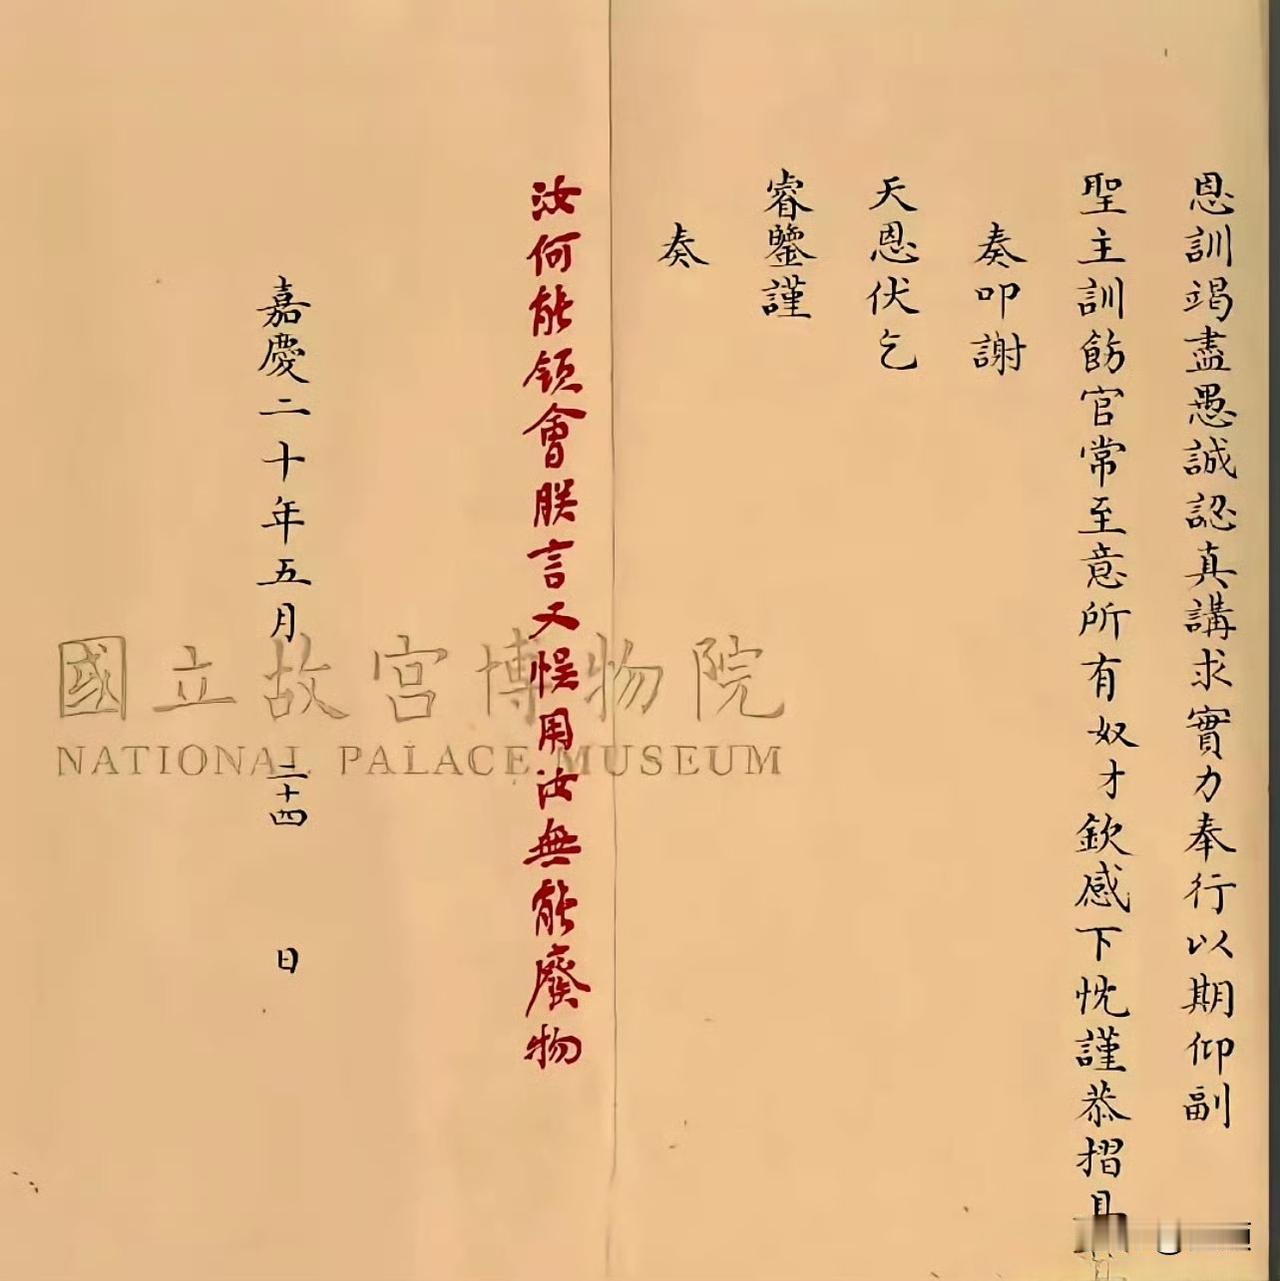 恩訓竭盡愚誠認真講求實力奉行以期仰副
聖主訓飭官常至意所有奴才欽感下忱謹恭摺具
奏叩謝
天恩伏乞
睿鑒謹
奏
汝何能領會朕言又悞用汝無能廢物
嘉慶二十年五月二十四日
國立故宮博物院
NATIONAL PALACE MUSEUM